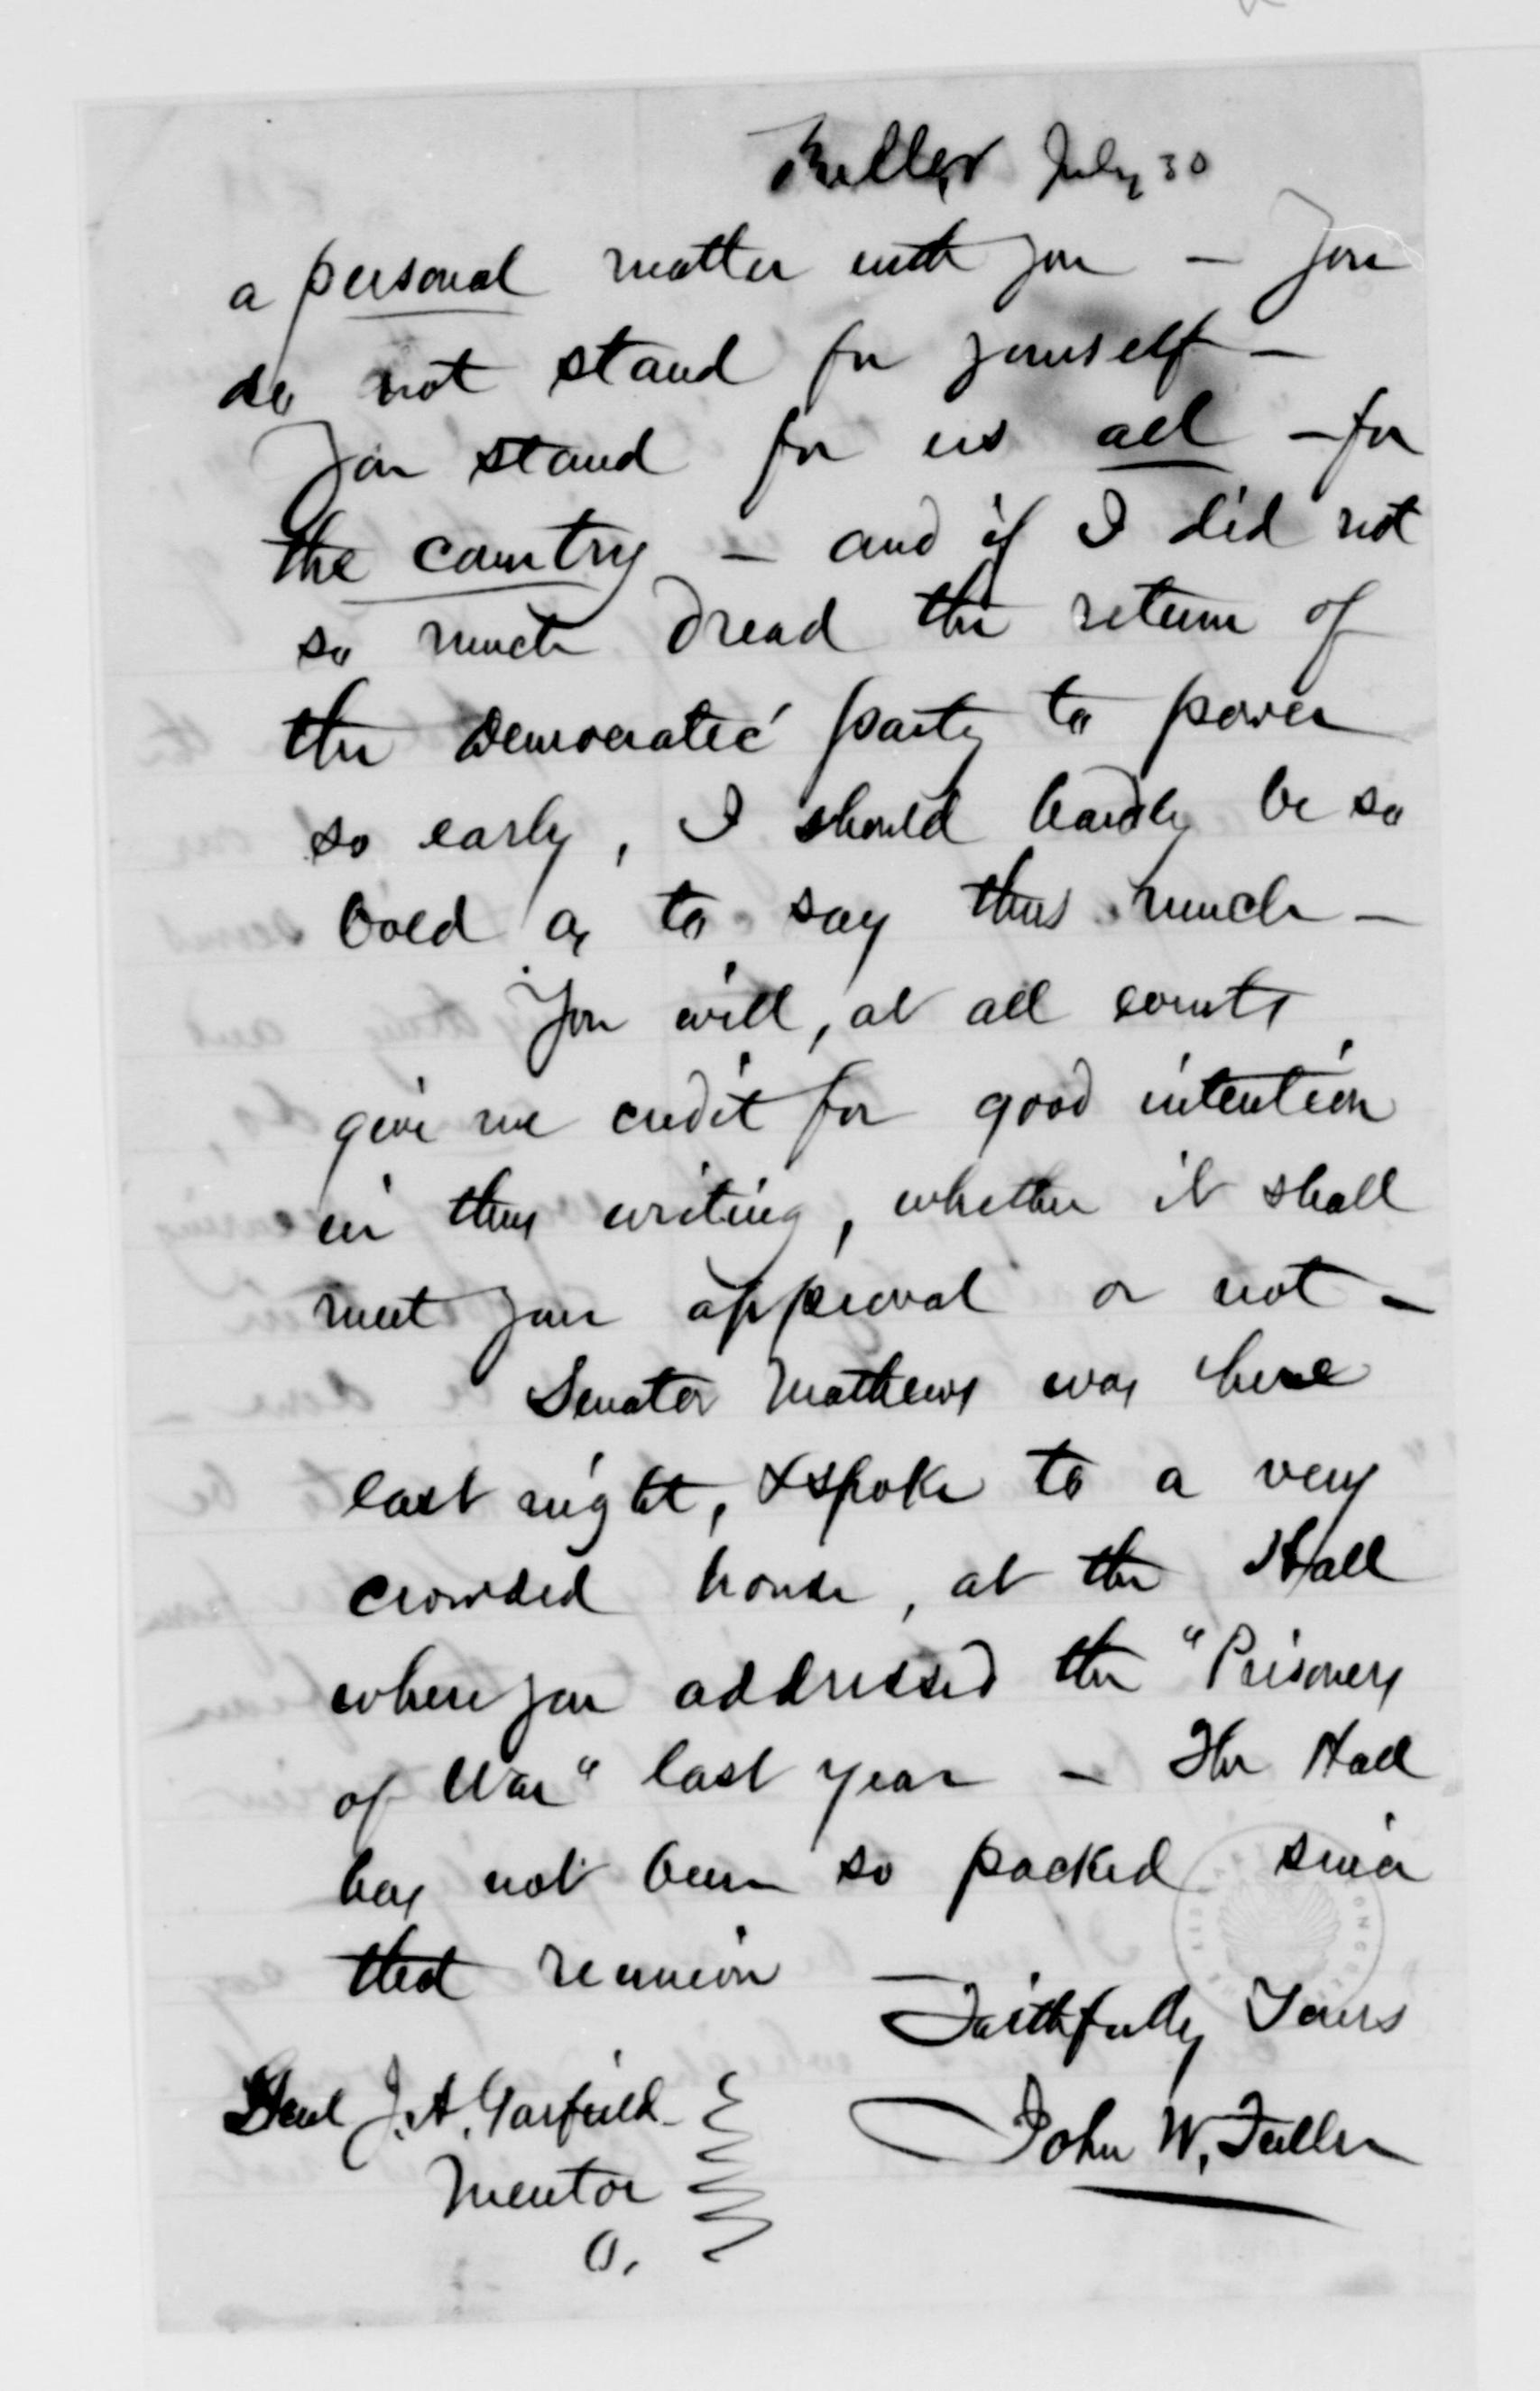 Fuller July 30
a personal matter with you - you
do not stand for yourself -
You stand for us all - for
the country - and if I did not
so much dread the return of
the Democratic party to power
so early, I should hardly be so
bold as to say thus much -
You will, at all events
give me credit for good intention
in thus writing, whether it shall
meet your approval or not -
Senator Mathews was here
last night, & spoke to a very
crowded house, at the Hall
where you addressed the "Prisoners
of War" last year - The Hall
has not been so packed since
that reunion
Faithfully Yours
John W. Fuller
Genl J. A. Garfield
Mentor
O.